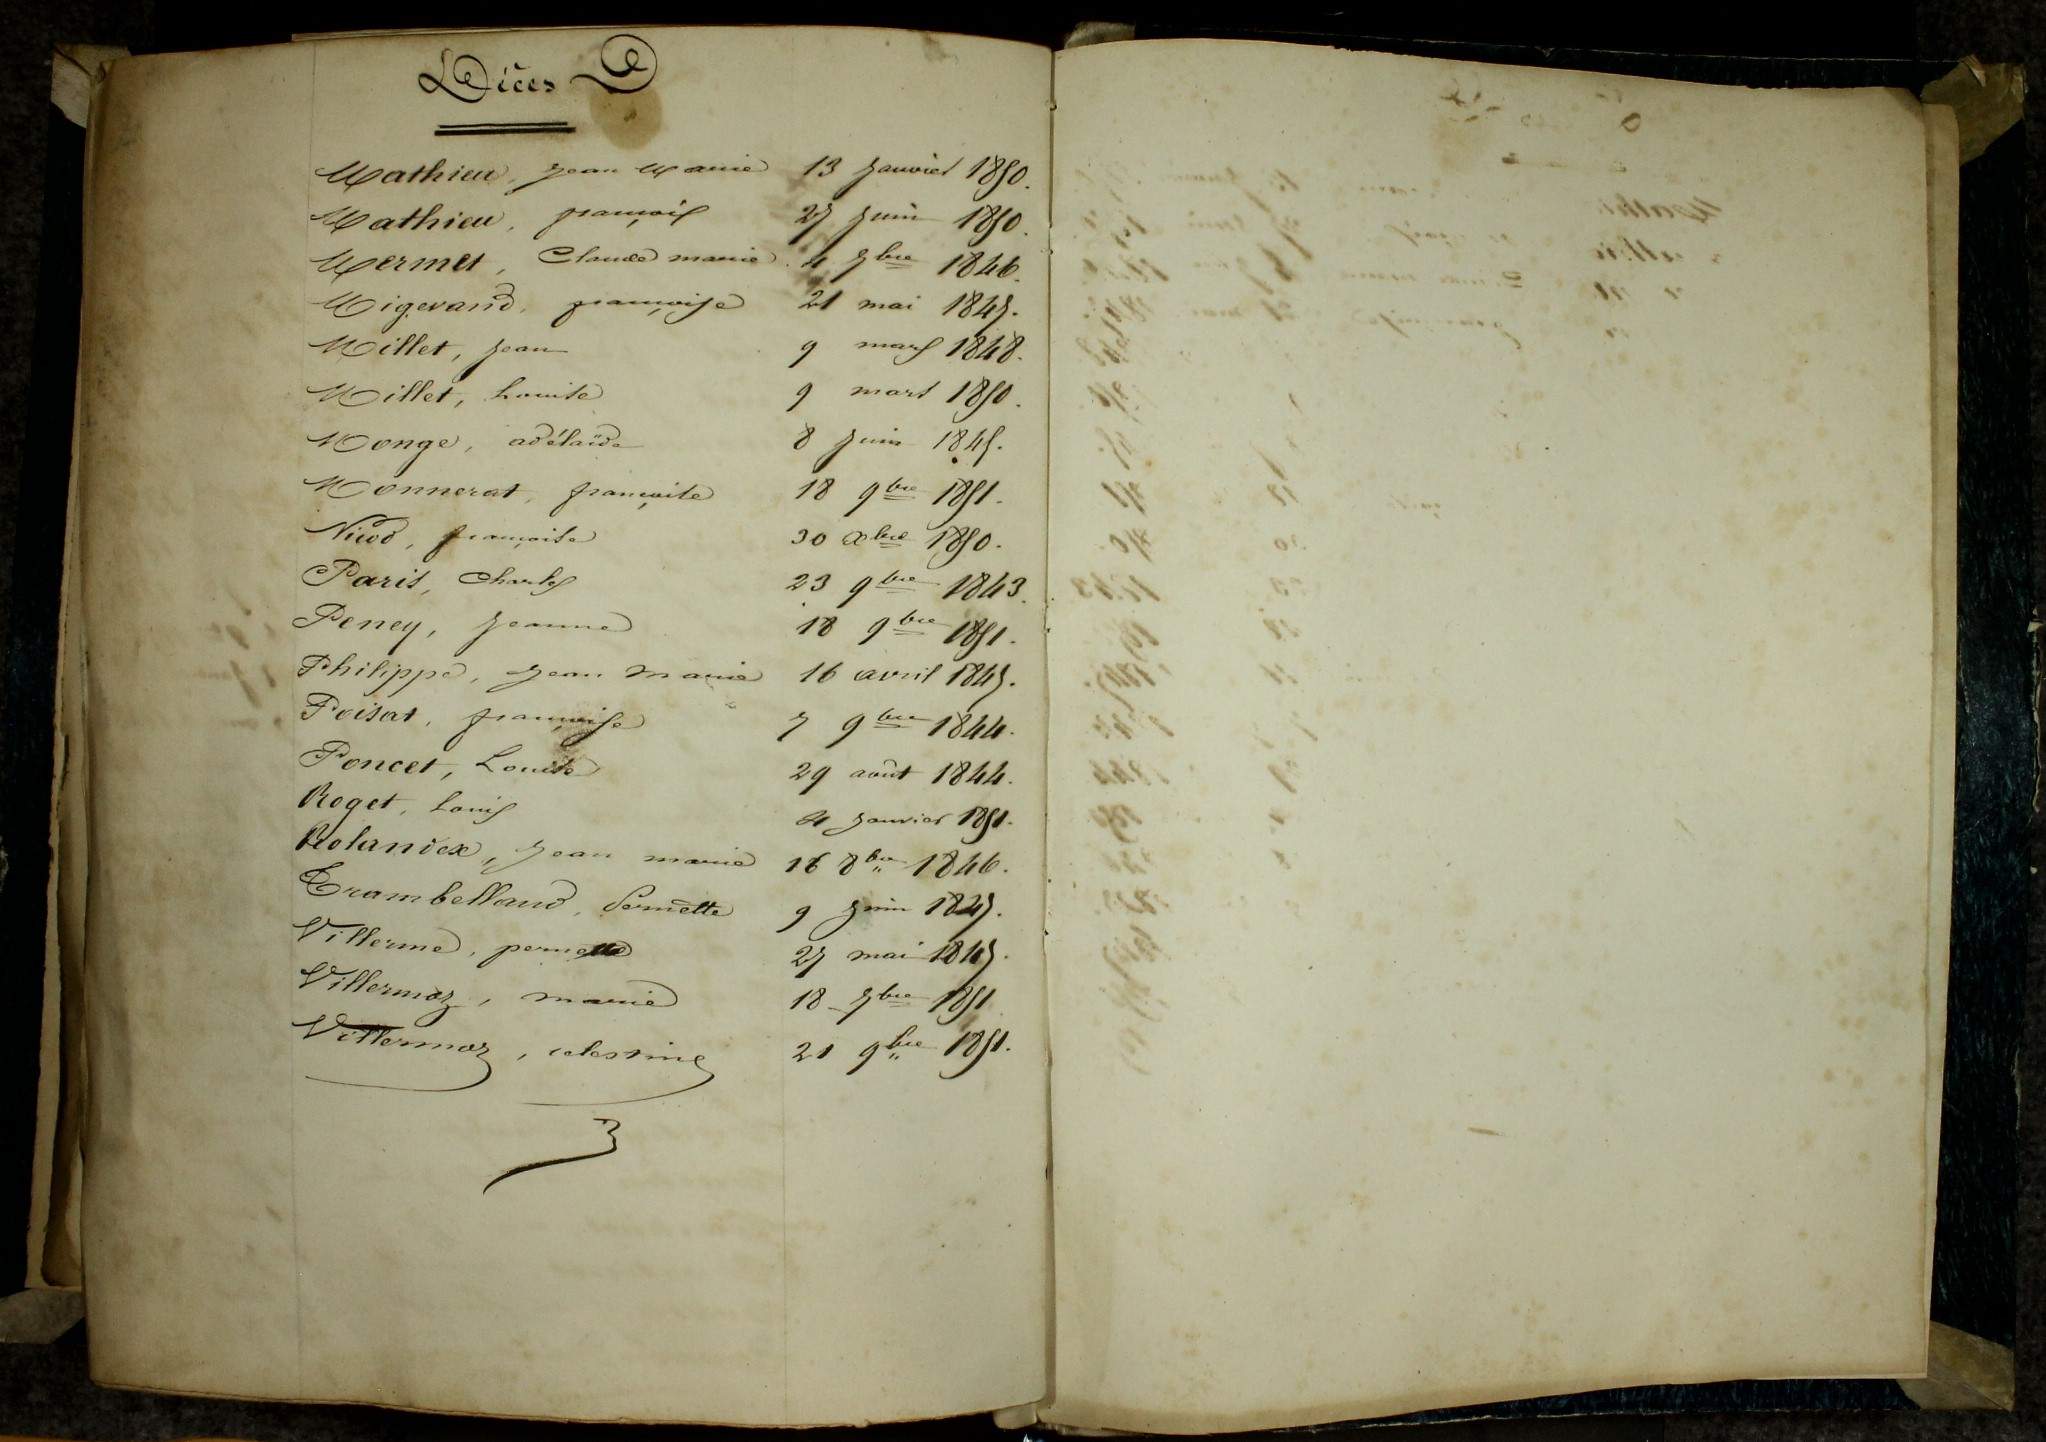 Décès
Mathieu, Jean Marie 13 Janvier 1850.
Mathieu, françois 27 Juin 1850.
Mermet, Claude marie 4 7bre 1846.
Migerand, françoise 21 mai 1845.
Millet, Jean 9 mars 1848.
Millet, Louise 9 mars 1850.
Monge, adélaïde 8 Juin 1845.
Monnerat, françoise 18 9bre 1851.
Nicod, françoise 30 xbre 1850.
Paris, Charles 23 9bre 1843.
Peney, Jeanne 18 9bre 1851.
Philippe, Jean Marie 16 avril 1845.
Poisat, françoise 7 9bre 1844.
Poncet, Louise 29 août 1844.
Roget, Louis 4 Janvier 1851.
Rolandex, Jean marie 16 8bre 1846.
Trambelland, Pernette 9 Juin
Villerme, pernette 27 mai 1845.
Villermoz, marie 18 7bre 1851
Villermoz, celestine 21 9bre 1851.